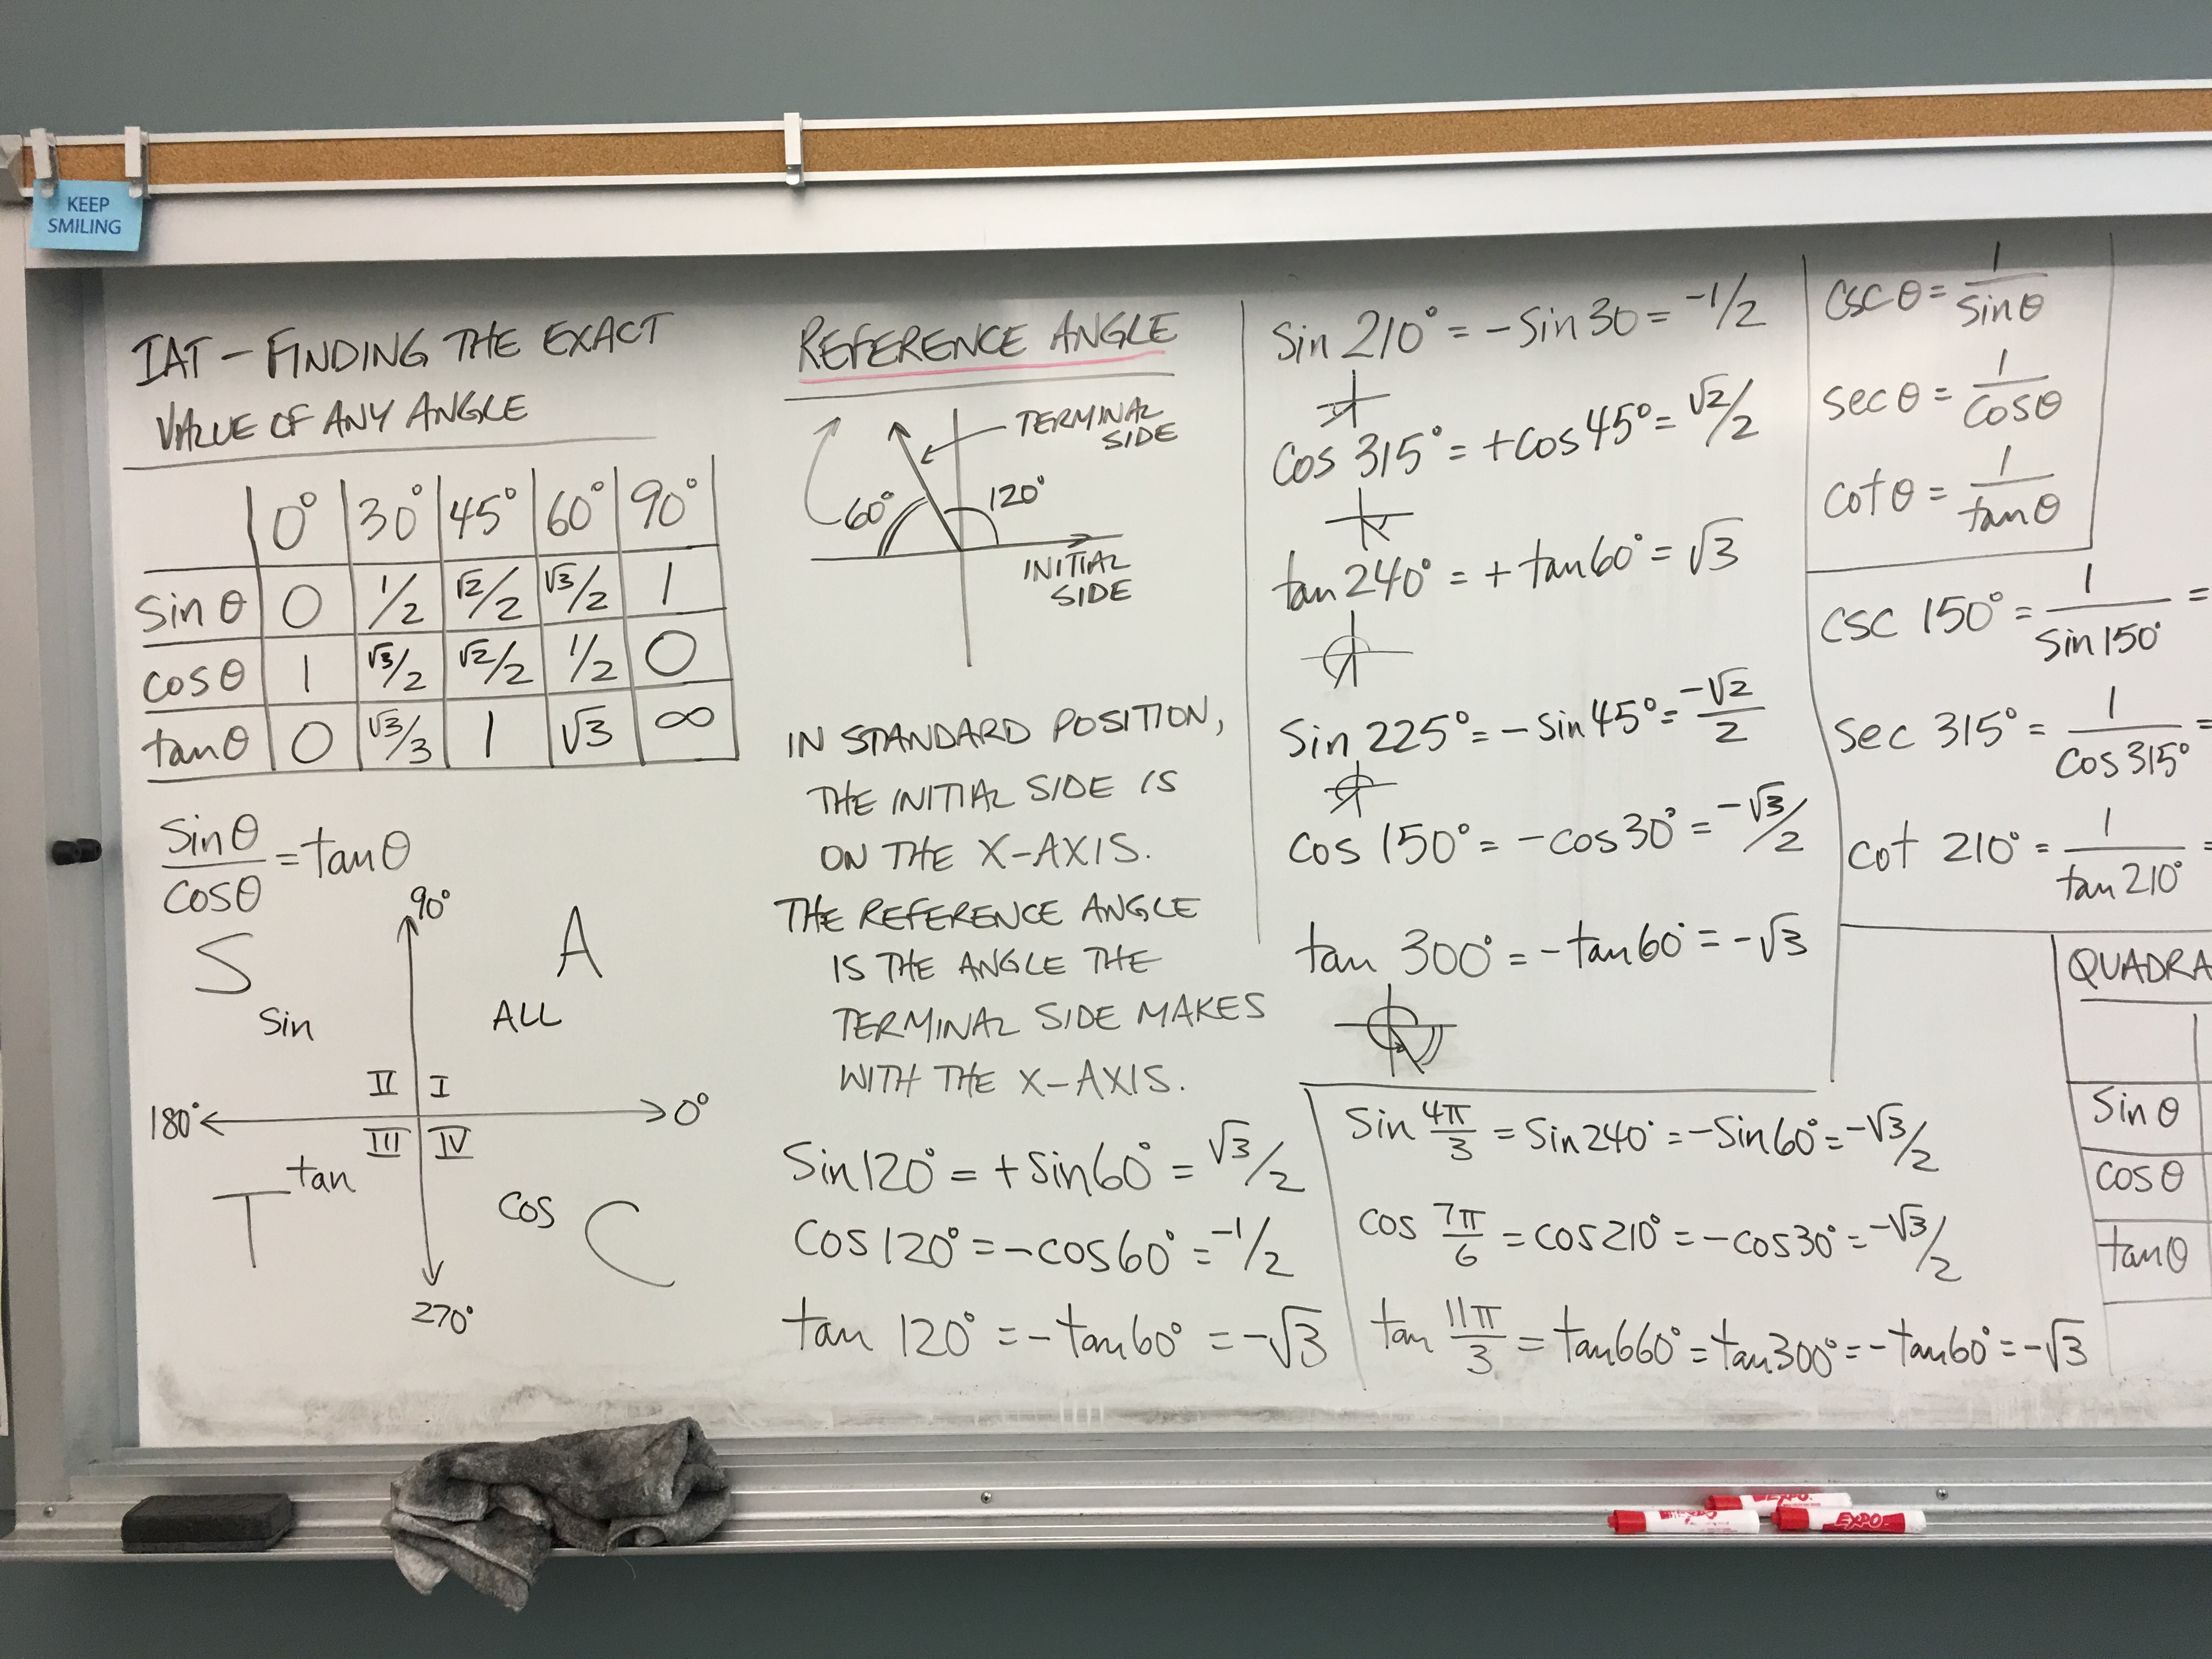 KEEP
SMILING
IAT - FINDING THE EXACT
VALUE OF ANY ANGLE
0° 30° 45° 60° 90°
sin θ 0 1/2 √2/2 √3/2 1
cos θ 1 √3/2 √2/2 1/2 0
tan θ 0 √3/3 1 √3 ∞
sin θ / cos θ = tan θ
90°
S A
sin ALL
II I
180° 0°
III IV
T tan cos C
270°
REFERENCE ANGLE
TERMINAL
SIDE
60° 120°
INITIAL
SIDE
IN STANDARD POSITION,
THE INITIAL SIDE IS
ON THE X-AXIS.
THE REFERENCE ANGLE
IS THE ANGLE THE
TERMINAL SIDE MAKES
WITH THE X-AXIS.
sin 120° = + sin 60° = √3/2
cos 120° = - cos 60° = -1/2
tan 120° = - tan 60° = -√3
sin 210° = - sin 30 = -1/2
cos 315° = + cos 45° = √2/2
tan 240° = + tan 60° = √3
sin 225° = - sin 45° = -√2/2
cos 150° = - cos 30° = -√3/2
tan 300° = - tan 60° = -√3
sin 4π/3 = sin 240° = - sin 60° = -√3/2
cos 7π/6 = cos 210° = - cos 30° = -√3/2
tan 11π/3 = tan 660° = tan 300° = - tan 60° = -√3
csc θ = 1/sin θ
sec θ = 1/cos θ
cot θ = 1/tan θ
csc 150° = 1/sin 150° =
sec 315° = 1/cos 315° =
cot 210° = 1/tan 210° =
QUADRA
sin θ
cos θ
tan θ
EXPO